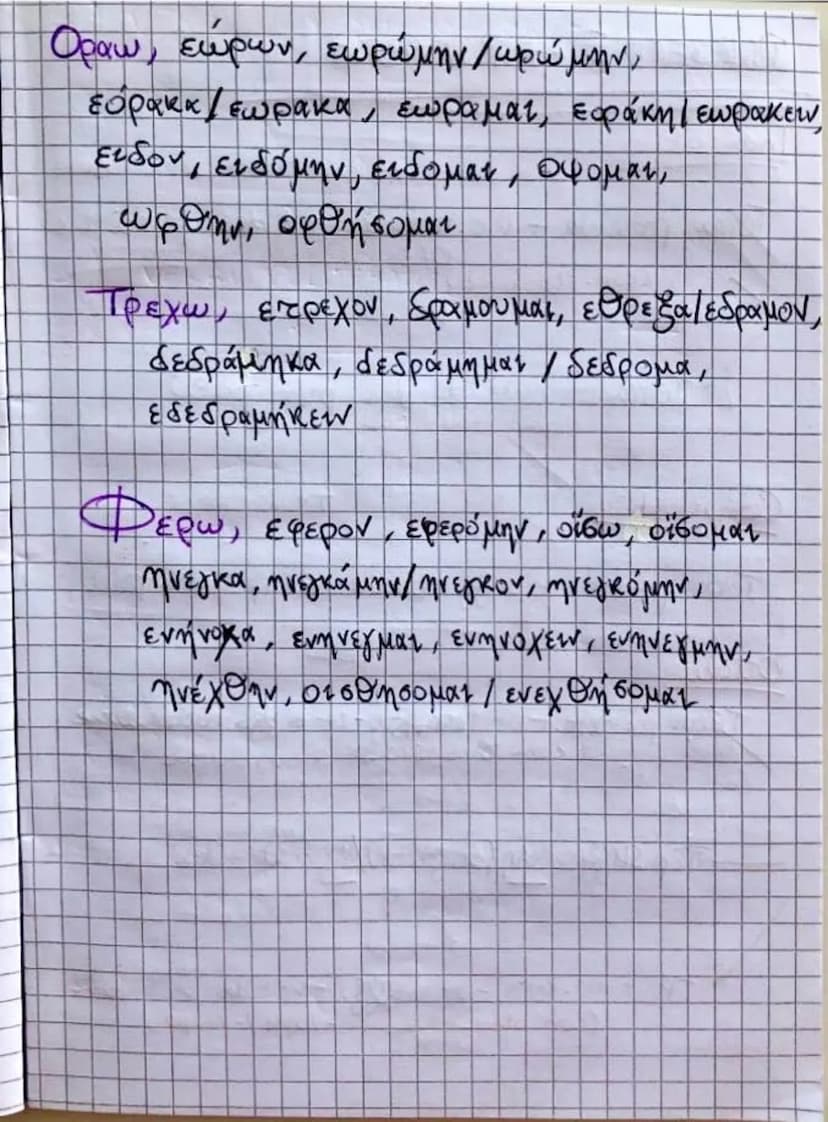 Οραω, εώρων, εωρώμην/ωρώμην,
εόρακα/εωρακα, εωραμαι, εοράκη/εωρακειν,
ειδον, ειδόμην, ειδομαι, οψομαι,
ωφθην, οφθήσομαι
Τρεχω, ετρεχον, δραμουμαι, εθρεξα/εδραμον,
δεδράμηκα, δεδράμημαι / δεδρομα,
εδεδραμήκειν
Φερω, εφερον, εφερόμην, οἴσω, οἴσομαι
ηνεγκα, ηνεγκάμην/ηνεγκον, ηνεγκόμην,
ενήνοχα, ενηνεγμαι, ενηνοχειν, ενηνεγμην,
ηνέχθην, οισθησομαι / ενεχθήσομαι